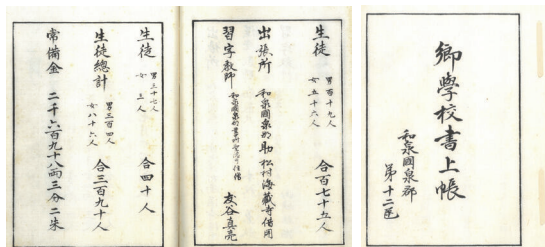 鄉學校書上帳
和泉國泉郡
第十二区
生徒 男百十九人 女五十六人 合百七十五人
出張所 和泉國泉郡助松村海蔵寺借用
習字教師 和泉國泉郡 友谷真亮
生徒 男三十七人 女三人 合四十人
生徒總計 男三百四人 女八十六人 合三百九十人
常備金 二千六百九十八両三分二朱